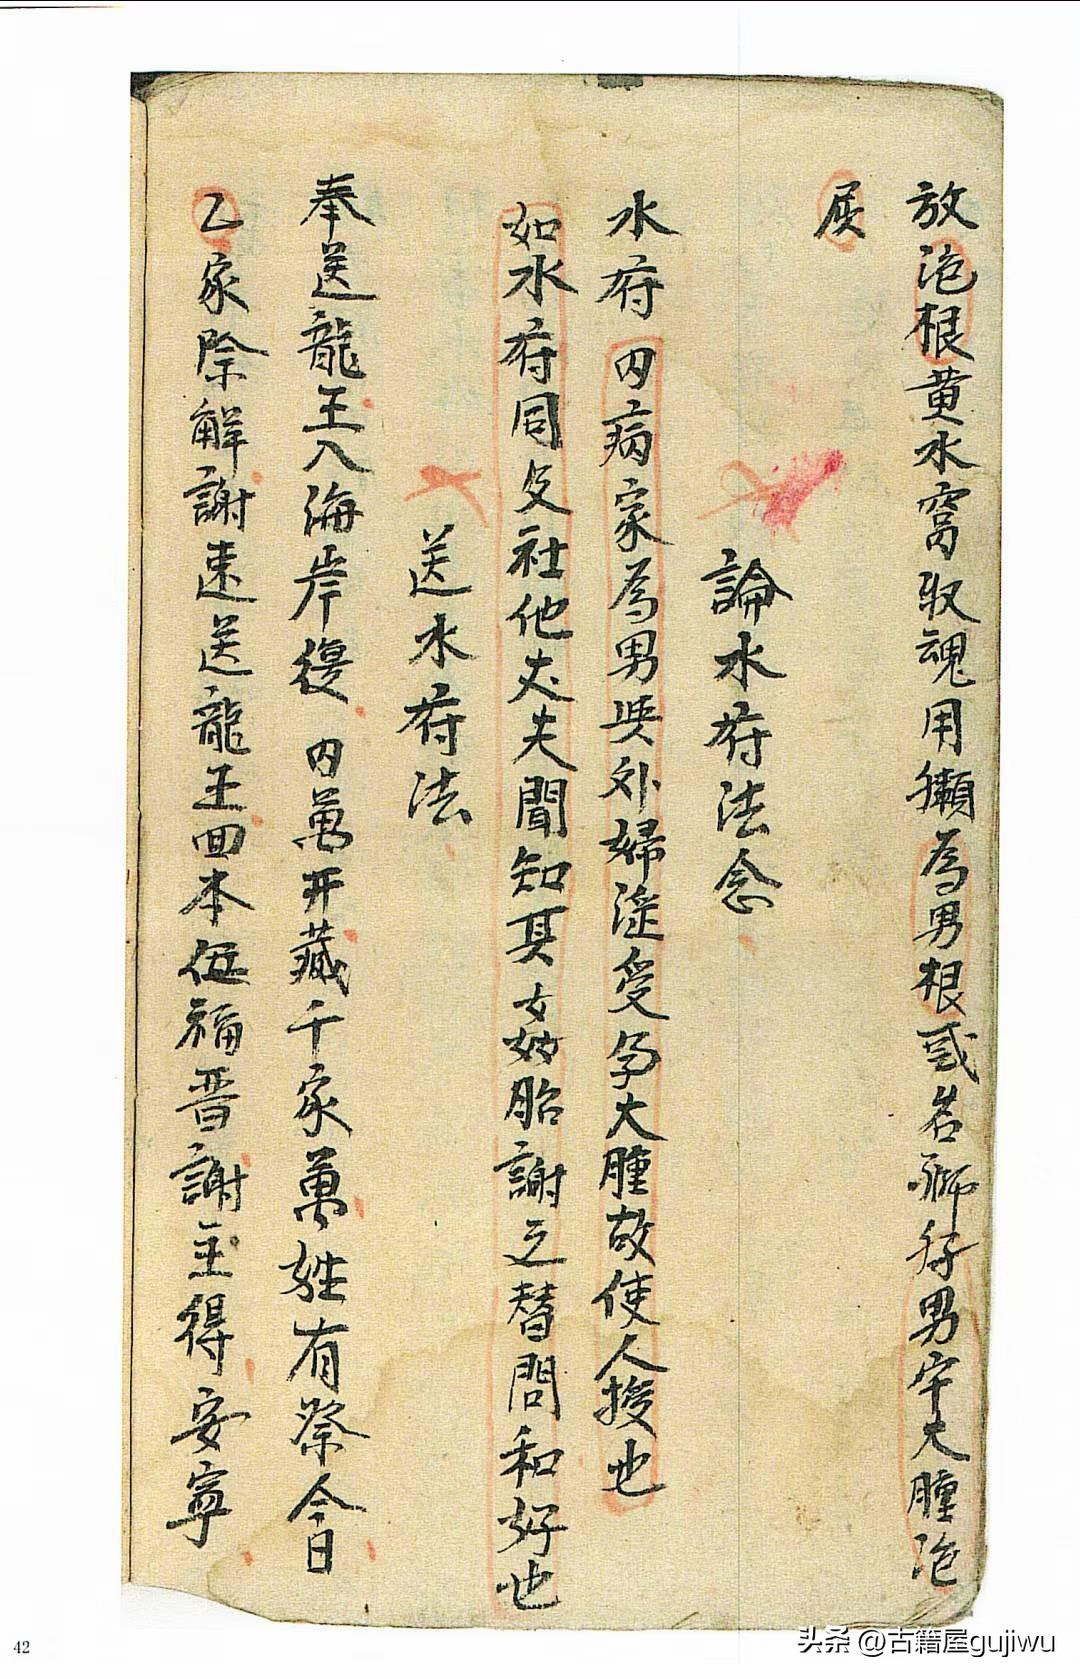 放泡根黄水窩収魂用獺為男根或名獅仔男字大腫泡
屐
論水府法念
水府内病家為男與外婦淫受孕大腫故使人援也
如水府同交社他丈夫聞知其女姦胎謝之替問和好也
送水府法
奉送龍王入海岸後内萬开藏千家萬姓有祭今日
乙家除解謝速送龍王回本位福晋謝主得安寧
42
头条 @古籍屋gujiwu